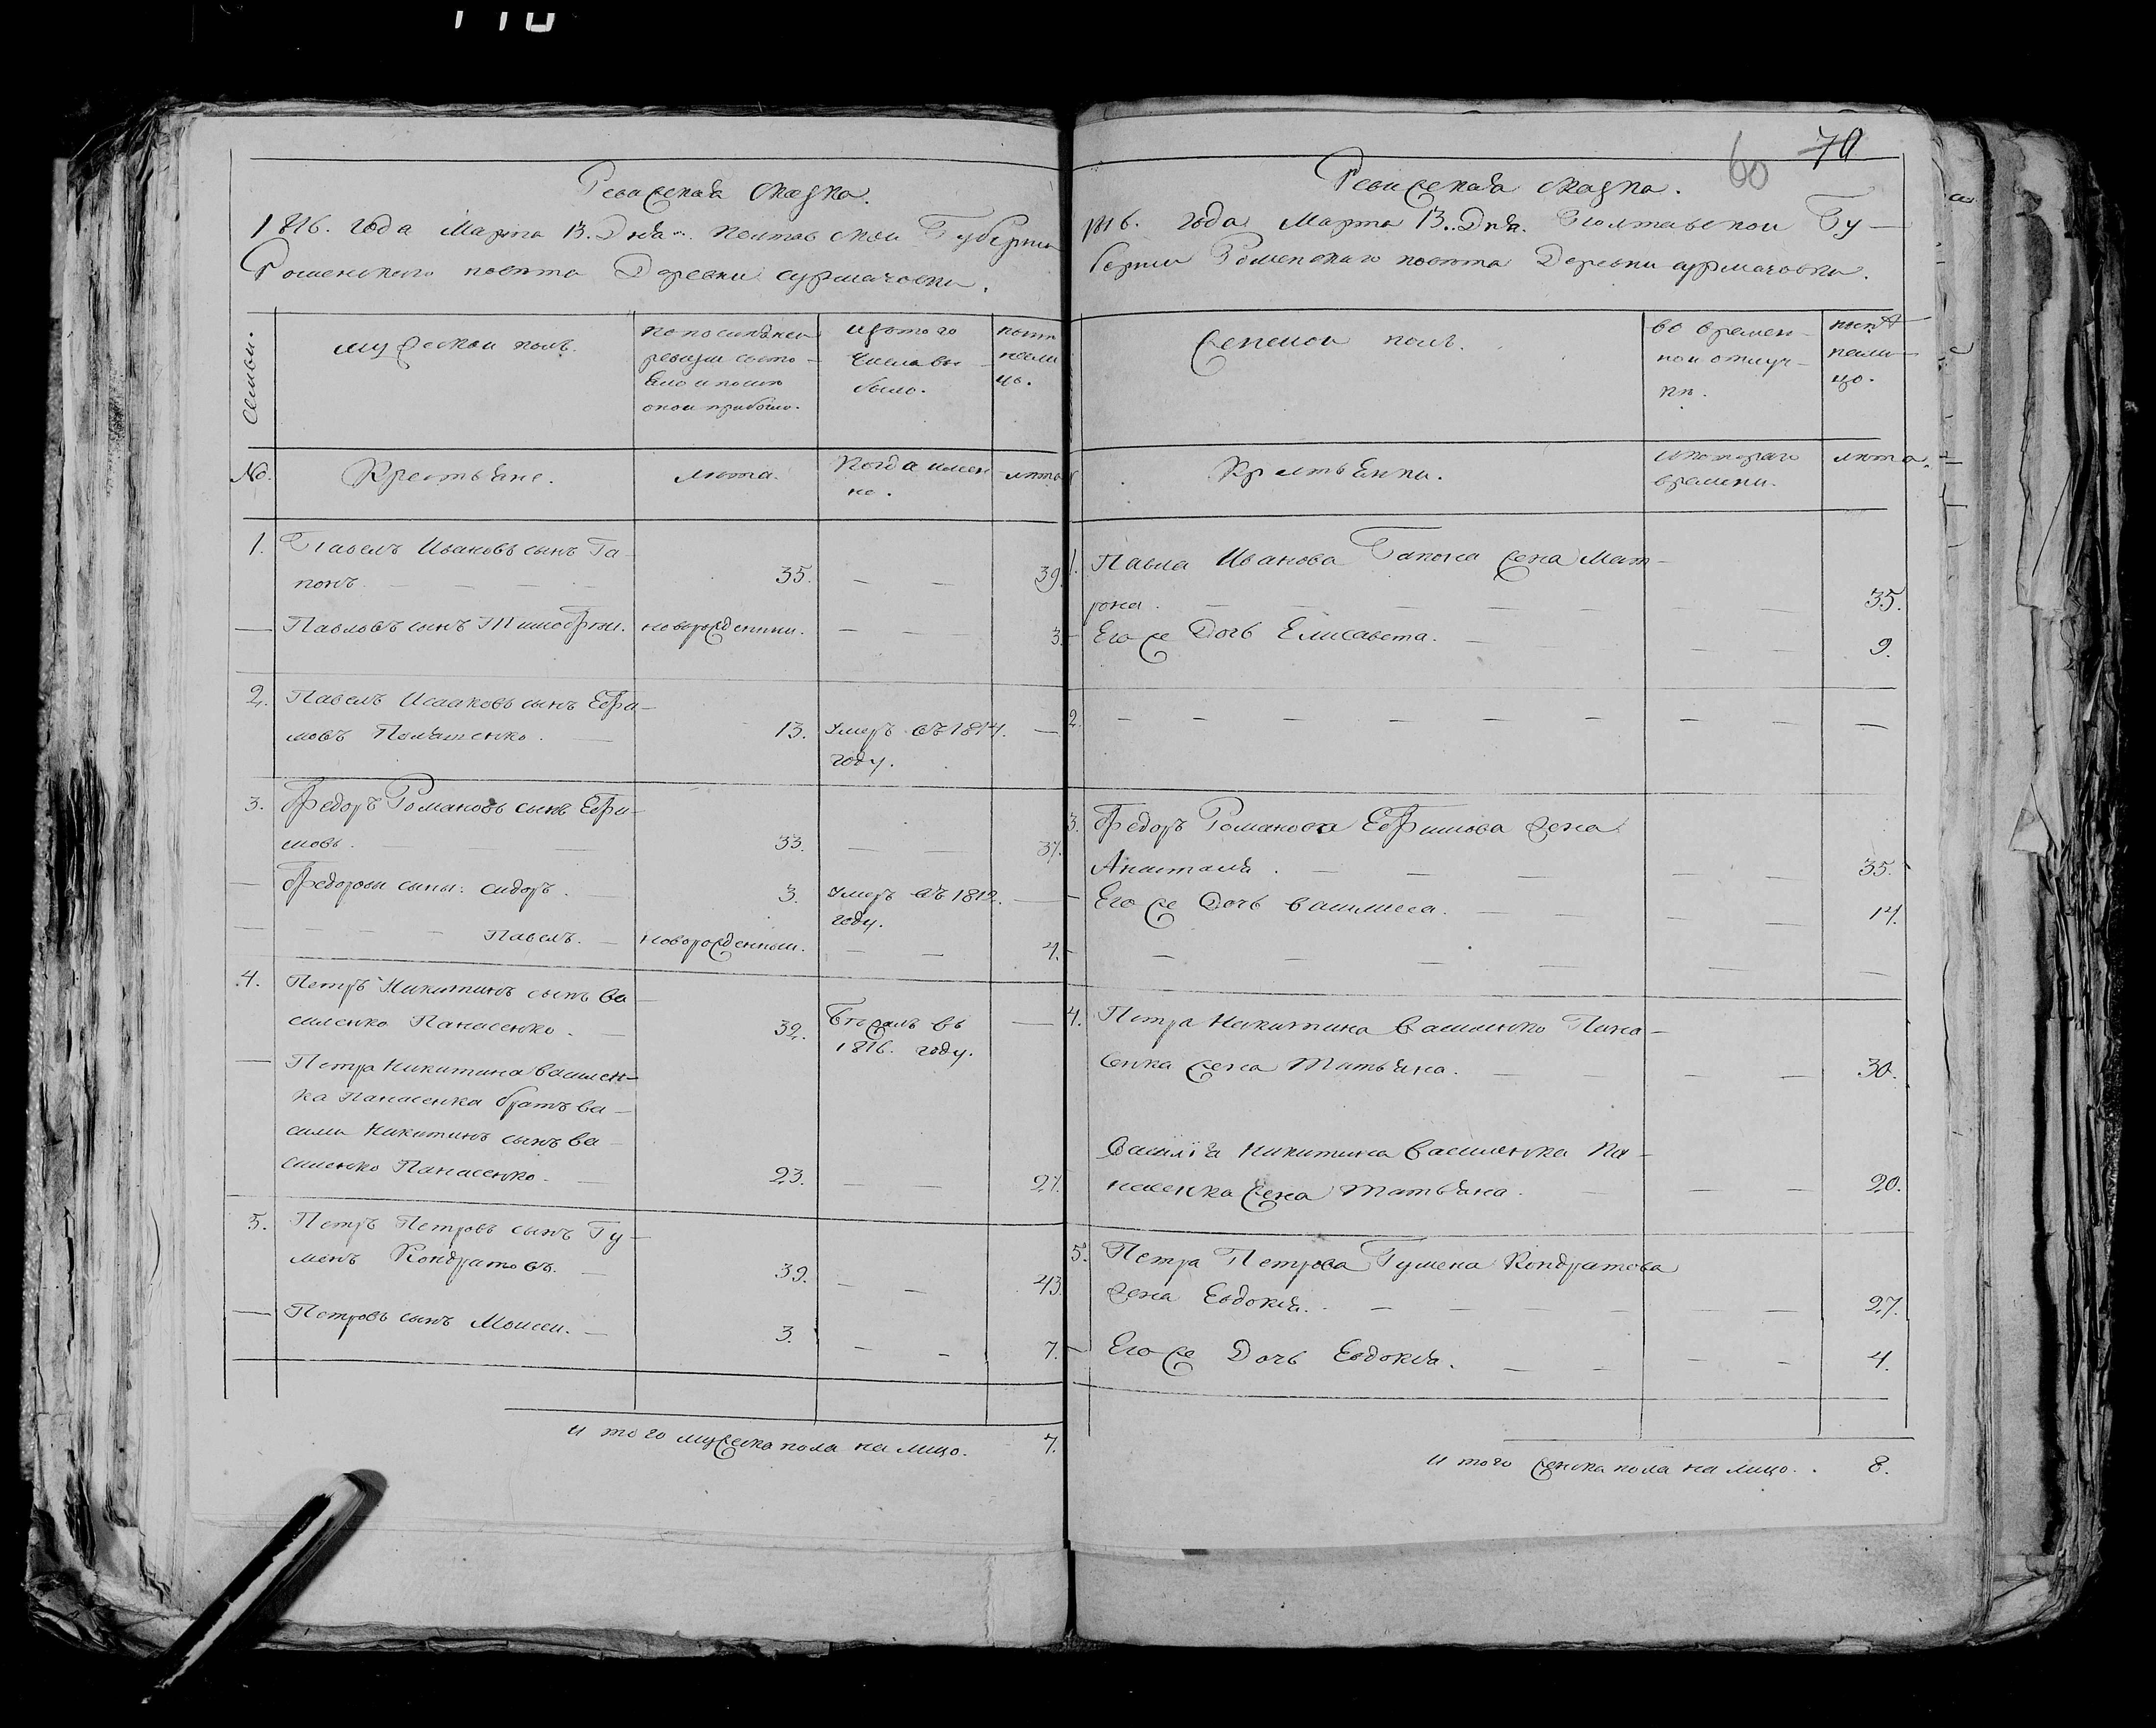 Ревизская сказка.
1816. года Марта 13. Дня. полтавской Губернии
Роменского повѣта Деревни сурмачовки.
Семьи.
мужеской полъ.
по последней
ревизіи состо-
яло и после
оной прибыло.
изъ того
числа вы-
было.
ныне
нали
цо.
No.
Крестьяне.
лѣта.
когда имен
но.
лѣта
1.
Павелъ Ивановъ сынъ Га-
понъ.
35.
39.
Павловъ сынъ Тимофеи.
новорожденныи.
3.
2.
Павелъ Исааковъ сынъ Ефи-
мовъ Помятенко.
13.
Умеръ въ 1814.
году.
3.
Федоръ Романовъ сынъ Ефи-
мовъ.
33.
37.
Федоровы сыны: сидоръ.
3.
Умеръ въ 1812.
году.
Павелъ.
новорожденныи.
4.
4.
Петръ Никитинъ сынъ ва-
силенко Панасенко.
32.
Бежалъ въ
1816. году.
Петра Никитина василен-
ка Панасенка братъ ва-
сили Никитинъ сынъ ва-
силенко Панасенко.
23.
27.
5.
Петръ Петровъ сынъ Гу-
менъ Кондратовъ.
39.
43.
Петровъ сынъ Моисеи.
3.
7.
и того мужеска пола на лицо.
7.
60 70
Ревизская сказка.
1816. года Марта 13. Дня. Полтавской Гу-
берніи Роменскаго повѣта Деревни сурмачовки.
женской полъ.
во времен-
ной отлуч-
кѣ.
нынѣ
нали-
цо.
Крестьянки.
съ котораго
времени.
лѣта.
1.
Павла Иванова Гапона жена Мат-
рона.
35.
Его же Дочь Елисавета.
9.
2.
3.
Федора Романова Ефимова жена
Анастасія.
35.
Его же Дочь василиса.
14.
4.
Петра Никитина василенко Пана-
сенка жена Татьяна.
30.
Василія Никитина василенка Па-
насенка жена Татьяна.
20.
5.
Петра Петрова Гумена Кондратова
жена Евдокія.
27.
Его же Дочь Евдокія.
4.
и того женска пола на лицо.
8.